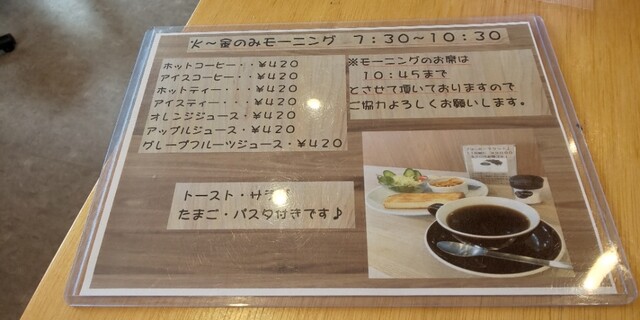 火～金のみモーニング 7:30～10:30
ホットコーヒー・・¥420
アイスコーヒー・・¥420
ホットティー・・・¥420
アイスティー・・・¥420
オレンジジュース・¥420
アップルジュース・¥420
グレープフルーツジュース・¥420
※モーニングのお席は
10:45まで
とさせて頂いておりますので
ご協力よろしくお願いします。
トースト・サラダ
たまご・パスタ付きです♪